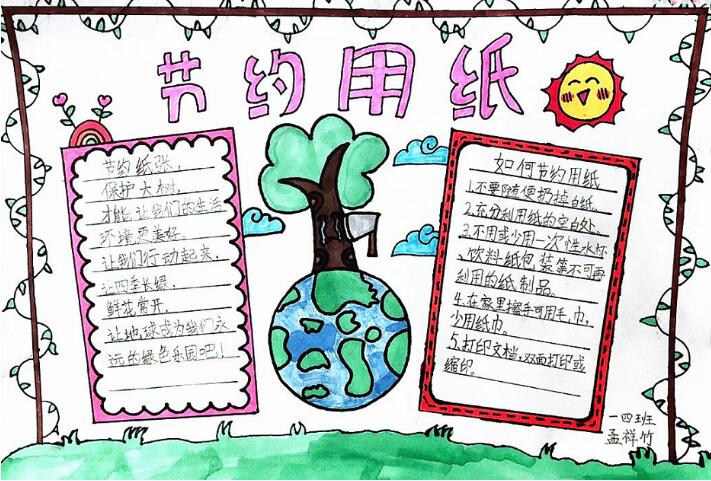 节约用纸
节约纸张，
保护大树，
才能让我们的生活
环境更美好，
让我们行动起来，
让四季长绿，
鲜花常开，
让地球成为我们永
远的绿色乐园吧！
如何节约用纸
1.不要随便扔掉白纸。
2.充分利用纸的空白处。
3.不用或少用一次性水杯
、饮料纸包装等不可再
利用的纸制品。
4.在家里擦手可用手巾，
少用纸巾。
5.打印文档，双面打印或
缩印。
一四班
孟祥竹